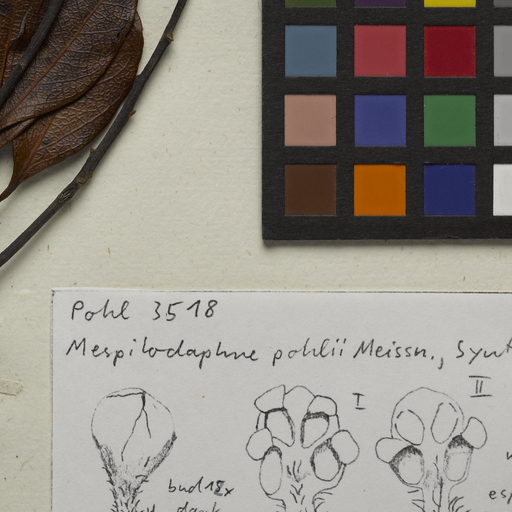 Pohl 3518
Mespilodaphne pohlii Meissn., Synt
I
II
bud 15x
dark